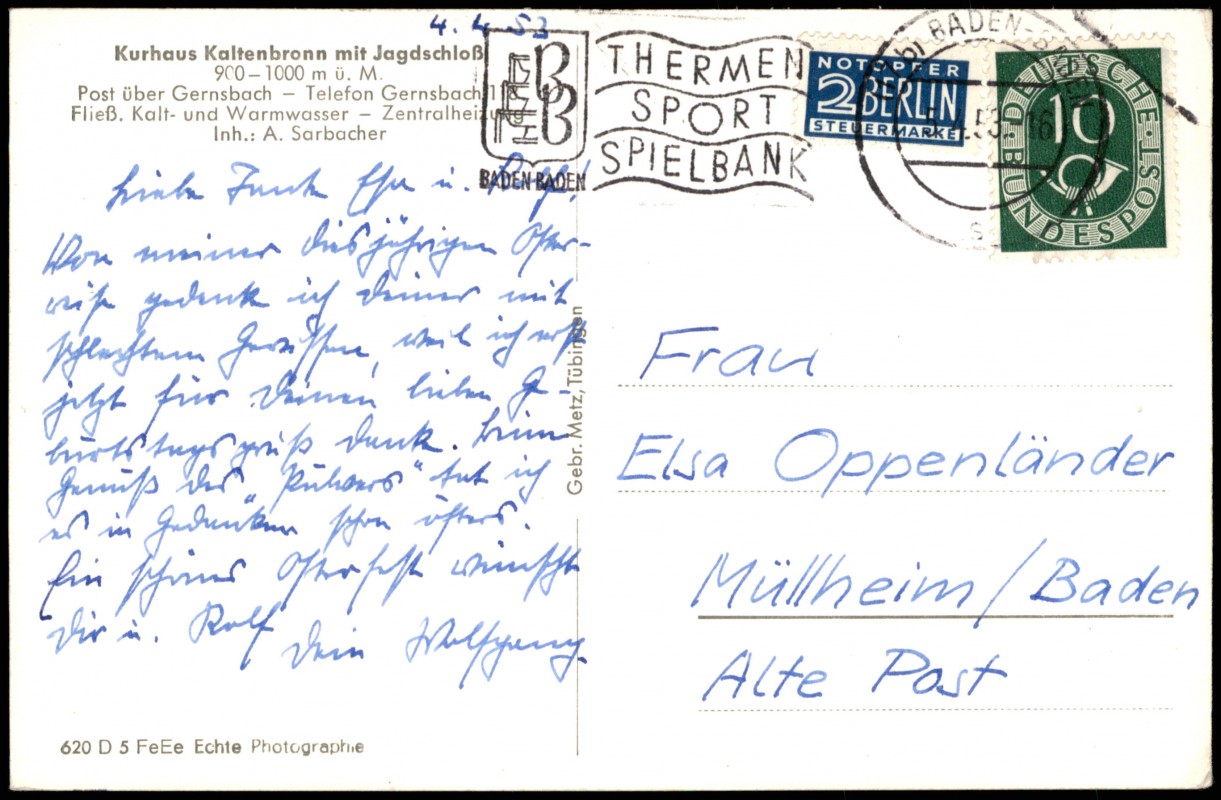 4.4.53
Kurhaus Kaltenbronn mit Jagdschloß
900–1000 m ü. M.
Post über Gernsbach – Telefon Gernsbach
Fließ. Kalt- und Warmwasser – Zentralheizung
Inh.: A. Sarbacher
BADEN-BADEN
THERMEN
SPORT
SPIELBANK
NOTOPFER
2 BERLIN
STEUERMARKE
BADEN-BADEN
DEUTSCHE
10
BUNDESPOST
Liebe Tante Elsa u.
Von meiner diesjährigen Oster-
reise gedenke ich Deiner mit
schlechtem Gewissen, weil ich erst
jetzt für Deinen lieben Ge-
burtstagsgruß danke. Beim
Genuß des "Pulvers" tat ich
es in Gedanken schon öfters.
Ein schönes Osterfest wünscht
Dir u. Rolf Dein Wolfgang.
Gebr. Metz, Tübingen
Frau
Elsa Oppenländer
Müllheim/Baden
Alte Post
620 D 5 FeEe Echte Photographie